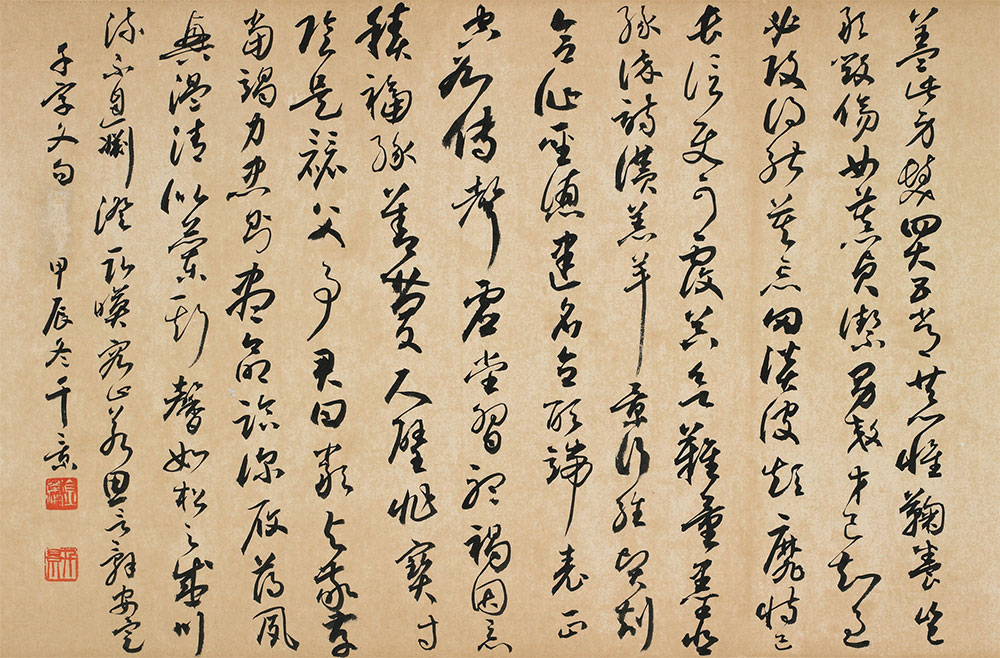 蓋此身髮四大五常恭惟鞠養豈
敢毀傷女慕貞潔男效才良知過
必改得能莫忘罔談彼短靡恃己
長信使可覆器欲難量墨悲
絲染詩讚羔羊景行維賢剋
念作聖德建名立形端表正
空谷傳聲虛堂習聽禍因惡
積福緣善慶尺璧非寶寸
陰是競資父事君曰嚴與敬孝
當竭力忠則盡命臨深履薄夙
興溫清似蘭斯馨如松之盛川
流不息淵澄取暎容止若思言辭安定
千字文句 甲辰冬千景